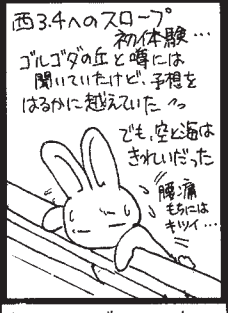 西3.4へのスロープ
初体験…
ゴルゴダの丘と噂には
聞いていたけど、予想を
はるかに越えていた
でも、空と海は
きれいだった
腰痛
もちには
キツイ…